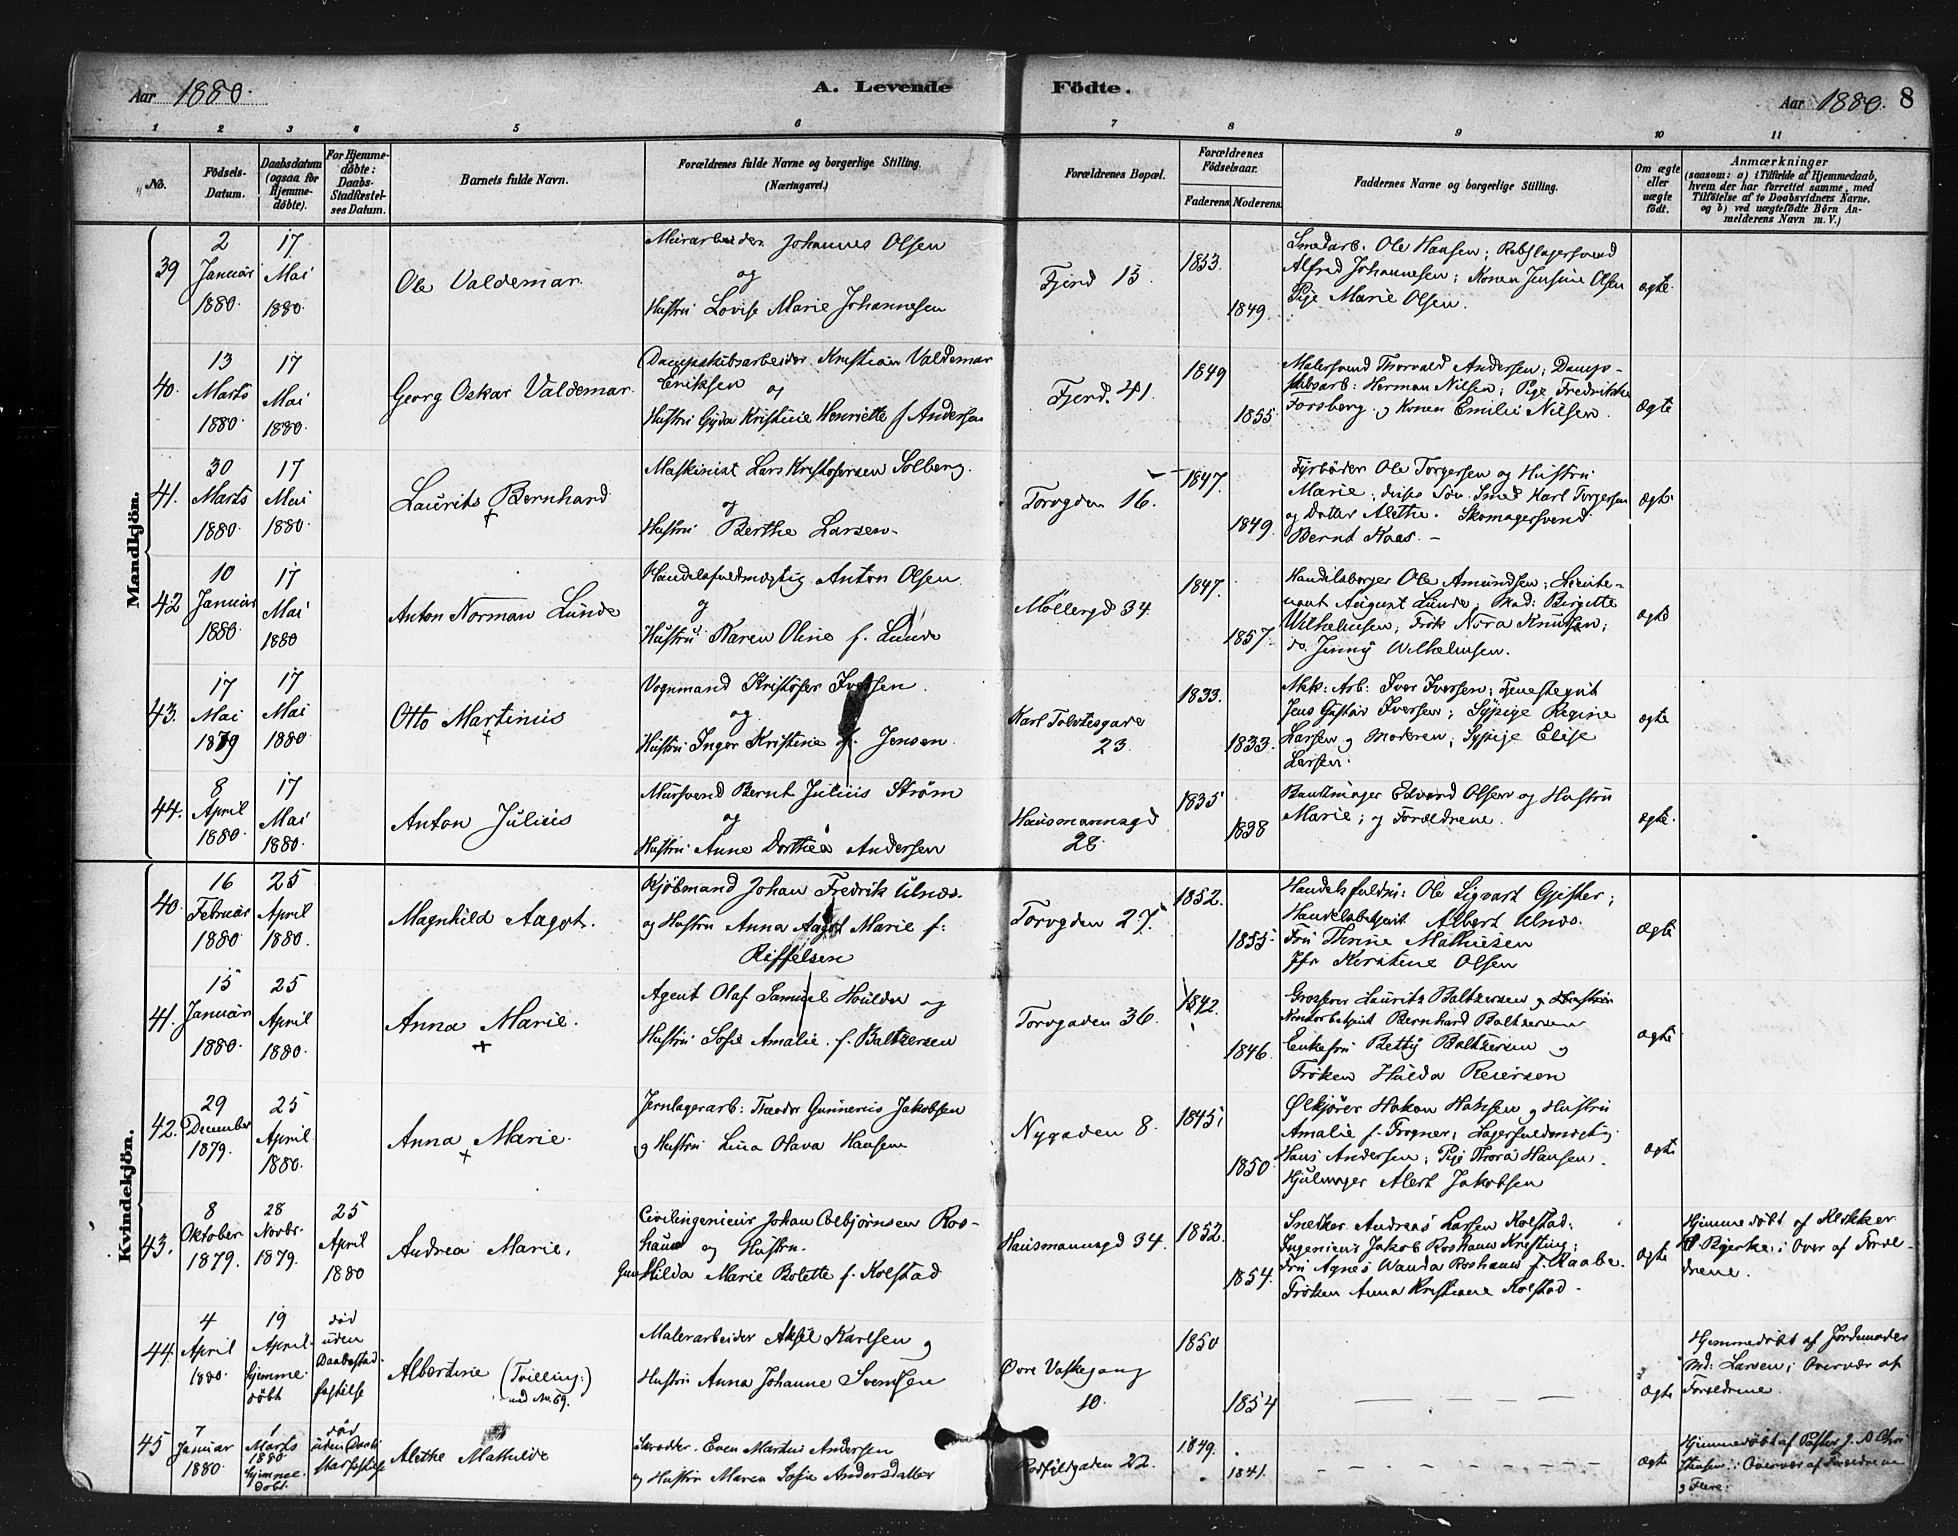 Aar 1880. A. Levende Födte. Aar 1880. 8
1 2 3 4 5 6 7 8 9 10 11
No. Födsels-Datum. Daabsdatum (ogsaa for Hjemme-döbte). For Hjemme-döbte: Daabs-Stadfæstel-ses Datum. Barnets fulde Navn. Forældrenes fulde Navne og borgerlige Stilling. (Næringsvei.) Forældrenes Bopæl. Forældrenes Födselsaar. Faderens. Moderens. Faddernes Navne og borgerlige Stilling. Om ægte eller uægte födt. Anmærkninger (saasom: a) i Tilfælde af Hjemmedaab, hvem der har forrettet samme, med Tilföielse af to Daabsvidners Navne. og b) ved uægtefödte Börn An-melderens Navn m. V.)
Mandkjön.
39 2 Januar 1880. 17 Mai 1880. Ole Valdemar.
Murarbeider Johannes Olsen
og
Hustru Lovise Marie Johannesen
Fjerd 15. 1853. 1849.
Smedarb. Ole Hansen; Rebslagersvend
Alfred Johannesen; Konen Jensine Olsen
Pige Marie Olsen.
ægte.
40. 13 Marts 1880. 17 Mai 1880. Georg Oskar Valdemar.
Dampskibsarbeider Kristian Valdemar
Eriksen og
Hustru Gyda Kristine Henriette f. Andersen
Fjerd. 41. 1849 1855
Malersvend Thorvald Andersen; Damps-
skibsarb: Herman Nilsen; Pige Fredrikke
Forsberg og Konen Emilie Nilsen.
Ægte
41. 30 Marts 1880. 17 Mai 1880. Laurits Bernhard
Maskinist Lars Kristofersen Solberg.
og
Hustru Berthe Larsen
Torvgden 16. 1847. 1849.
Fyrbøder Ole Torgersen og Hustru
Marie; deres Søn Smed Karl Torgersen
og Datter Alethe. Skomagersvend
Bernt Kaas.
Ægte
42 10 Januar 1880. 17 Mai 1880 Anton Norman Lunde
Handelsfuldmægtig Anton Olsen
og
Hustru Karen Oline f. Lunde
Møllergd 34. 1847. 1857.
Handelsborger Ole Amundsen; Lieute-
nant August Lunde; Mad: Birgitte
Wilhelmsen; Frøk Nora Knudsen;
do. Jenny Wilhelmsen.
ægte
43. 17 Mai 1879 17 Mai 1880. Otto Martinius
Vognmand Kristofer Iversen.
og
Hustru Inger Kristine f. Jensen.
Karl Tolvtesgade 23. 1833. 1833.
Mek: Arb: Iver Iversen; Tjenestegut
Jens Gustav Iversen; Sypige Regine
Larsen og Moderen; Sypige Elise
Larsen.
ægte
44. 8 April 1880. 17 Mai 1880. Anton Julius
Mursvend Bernt Julius Strøm
og
Hustru Anne Dorthea Andersen
Hausmannsgd 28. 1835 1838
Buntmager Edvard Olsen og Hustru
Marie; og Forældrene.
ægte.
Kvindekjön.
40. 16 Februar 1880 25 April 1880. Magnhild Aagot.
Kjøbmand Johan Fredrik Ulnæs.
og Hustru Anna Aagot Marie f:
Riffelsen
Torvgden 27. 1852. 1855.
Handelsfuldm: Ole Sigvart Gjester;
Handelsbetjent Albert Ulnæs.
Fru Thrine Mathiesen
Jfr Kirstine Olsen
Ægte
41. 15 Januar 1880. 25 April 1880. Anna Marie.
Agent Olaf Samuel Houlder og
Hustru Sofie Amalie f. Baltzersen
Torvgaden 36. 1842. 1846.
Grosserer Lauritz Baltzersen og Hustru
Kontorbetjent Bernhard Baltzersen
Enkefru Betty Baltzersen og
Frøken Hulda Reiersen
ægte
42. 29 December 1879. 25 April 1880. Anna Marie.
Jernlagerarb: Theodor Gunnerius Jakobsen
og Hustru Lina Olava Hansen
Nygaden 8. 1845. 1850.
Ølkjører Hakon Hansen og Hustru
Amalie f. Frogner; Lagerfuldmægtig
Hans Andersen; Pige Thora Hansen.
Hjulmager Alert Jakobsen
ægte
43. 8 Oktober 1879. 28 Novbr. 1879. 25 April 1880 Andrea Marie.
Civilingeniør Johan Colbjørnsen Ros-
hauw og Hustru
Hilda Marie Bolette f. Kolstad
Hausmannsgd 34. 1852. 1854.
Snedker Andreas Larsen Kolstad;
Ingeniør Jakob Roshauw
Fru Agnes Wanda Roshauw f. Raabe.
Frøken Anna Kristiane Kolstad.
ægte
Hjemmedøbt af Klokker
Bjerke; Over af Foræl-
drene.
44. 4 April 1880. 19 April. Hjemme-døbt død uden Daabsstad-fæstelse Albertine (Tvilling:) med No. 69.
Malerarbeider Aksel Karlsen og
Hustru Anna Johanne Svensen
Øvre Vaskegang 10. 1850 1854
Ægte
Hjemmedøbt af Jordemoder
Md: Larsen; Overvær af
Forældrene.
45 7 Januar 1880. 1 Marts 1880 Hjemme-døbt. død uden Daabs-stadfæstelse Alethe Mathilde
Even Martin Andersen
og Hustru Maren Sofie Andersdatter
Rødfyldgaden 22. 1849. 1841.
ægte
Hjemmedøbt af Pastor J. A. Chri-
stensen; Overvær af Forældrene
og Flere.